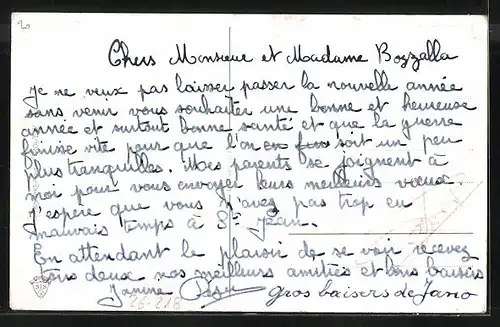 Chers Monsieur et Madame Bozzalla
Je ne veux pas laisser passer la nouvelle année
sans venir vous souhaiter une bonne et heureuse
année et surtout bonne santé et que la guerre
finisse vite pour que l'on en soit un peu
plus tranquilles. Mes parents se joignent à
moi pour vous envoyer leurs meilleurs vœux.
J'espère que vous n'avez pas trop eu
mauvais temps à St Jean.
En attendant le plaisir de se voir recevez
tous deux nos meilleurs amitiés et bons baisers
Janine
gros baisers de Jano
26-218